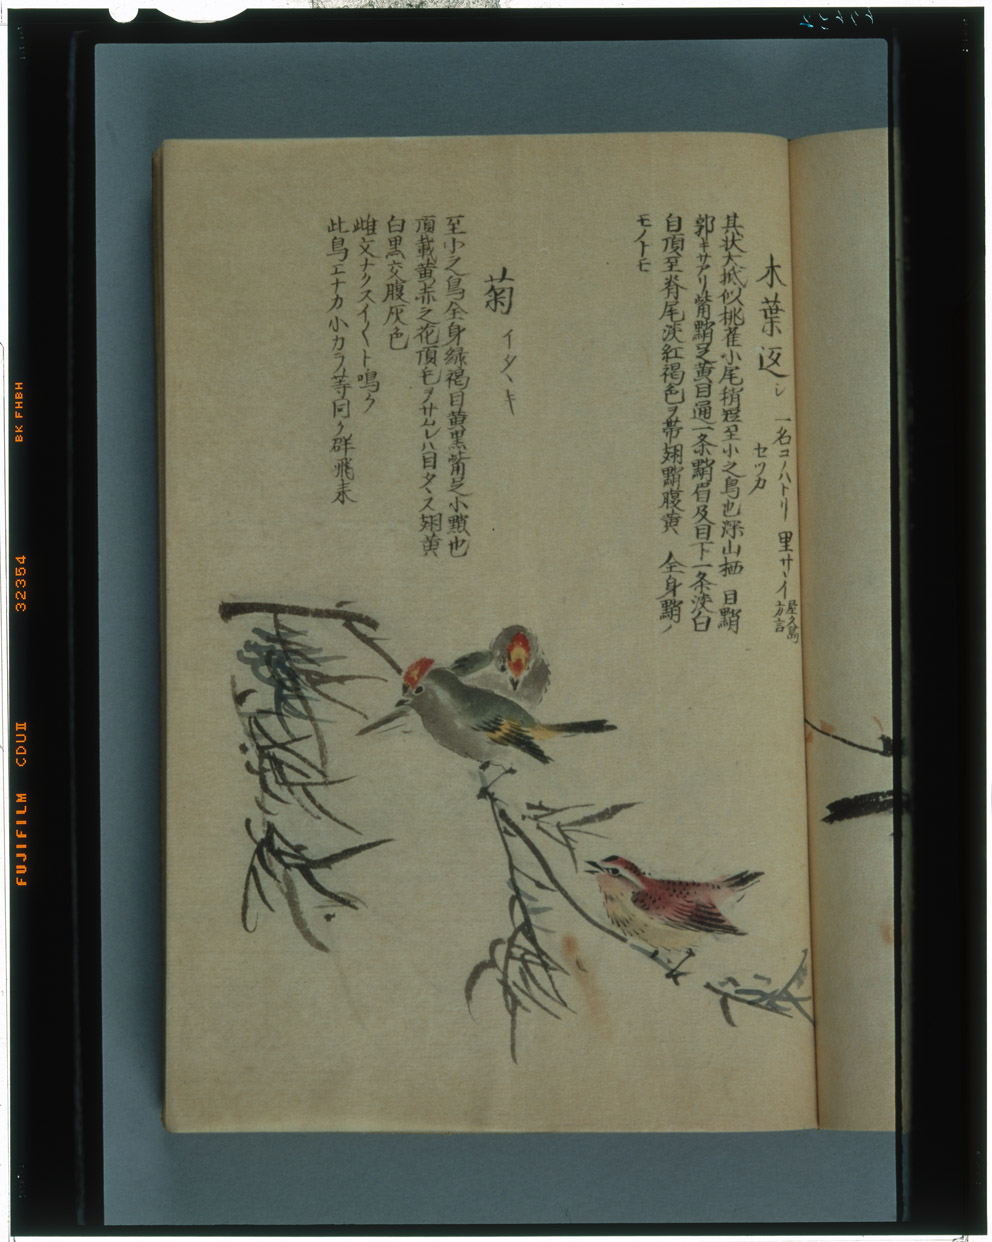 木葉返シ 一名コノハトリ 里サヽイ 屋久島方言
セツカ
其状大抵似桃雀小尾稍短至小之鳥也深山栖 目黧
郭キサアリ觜黧足黄目通一条黧眉及目下一条淡白
自頂至脊尾淡紅褐色ヲ帯翅黧腹黄 全身黧ノ
モノトモ
菊イタヽキ
至小之鳥全身緑褐目黄黒觜足小黧也
頂載黄赤之花頂毛ヲサムレハ目タヽス翅黄
白黒交腹灰色
雌文ナクスイ〱ト鳴ク
此鳥エナカ小カラ等同ク群飛来
FUJIFILM CDUII 32354 BKFHBH